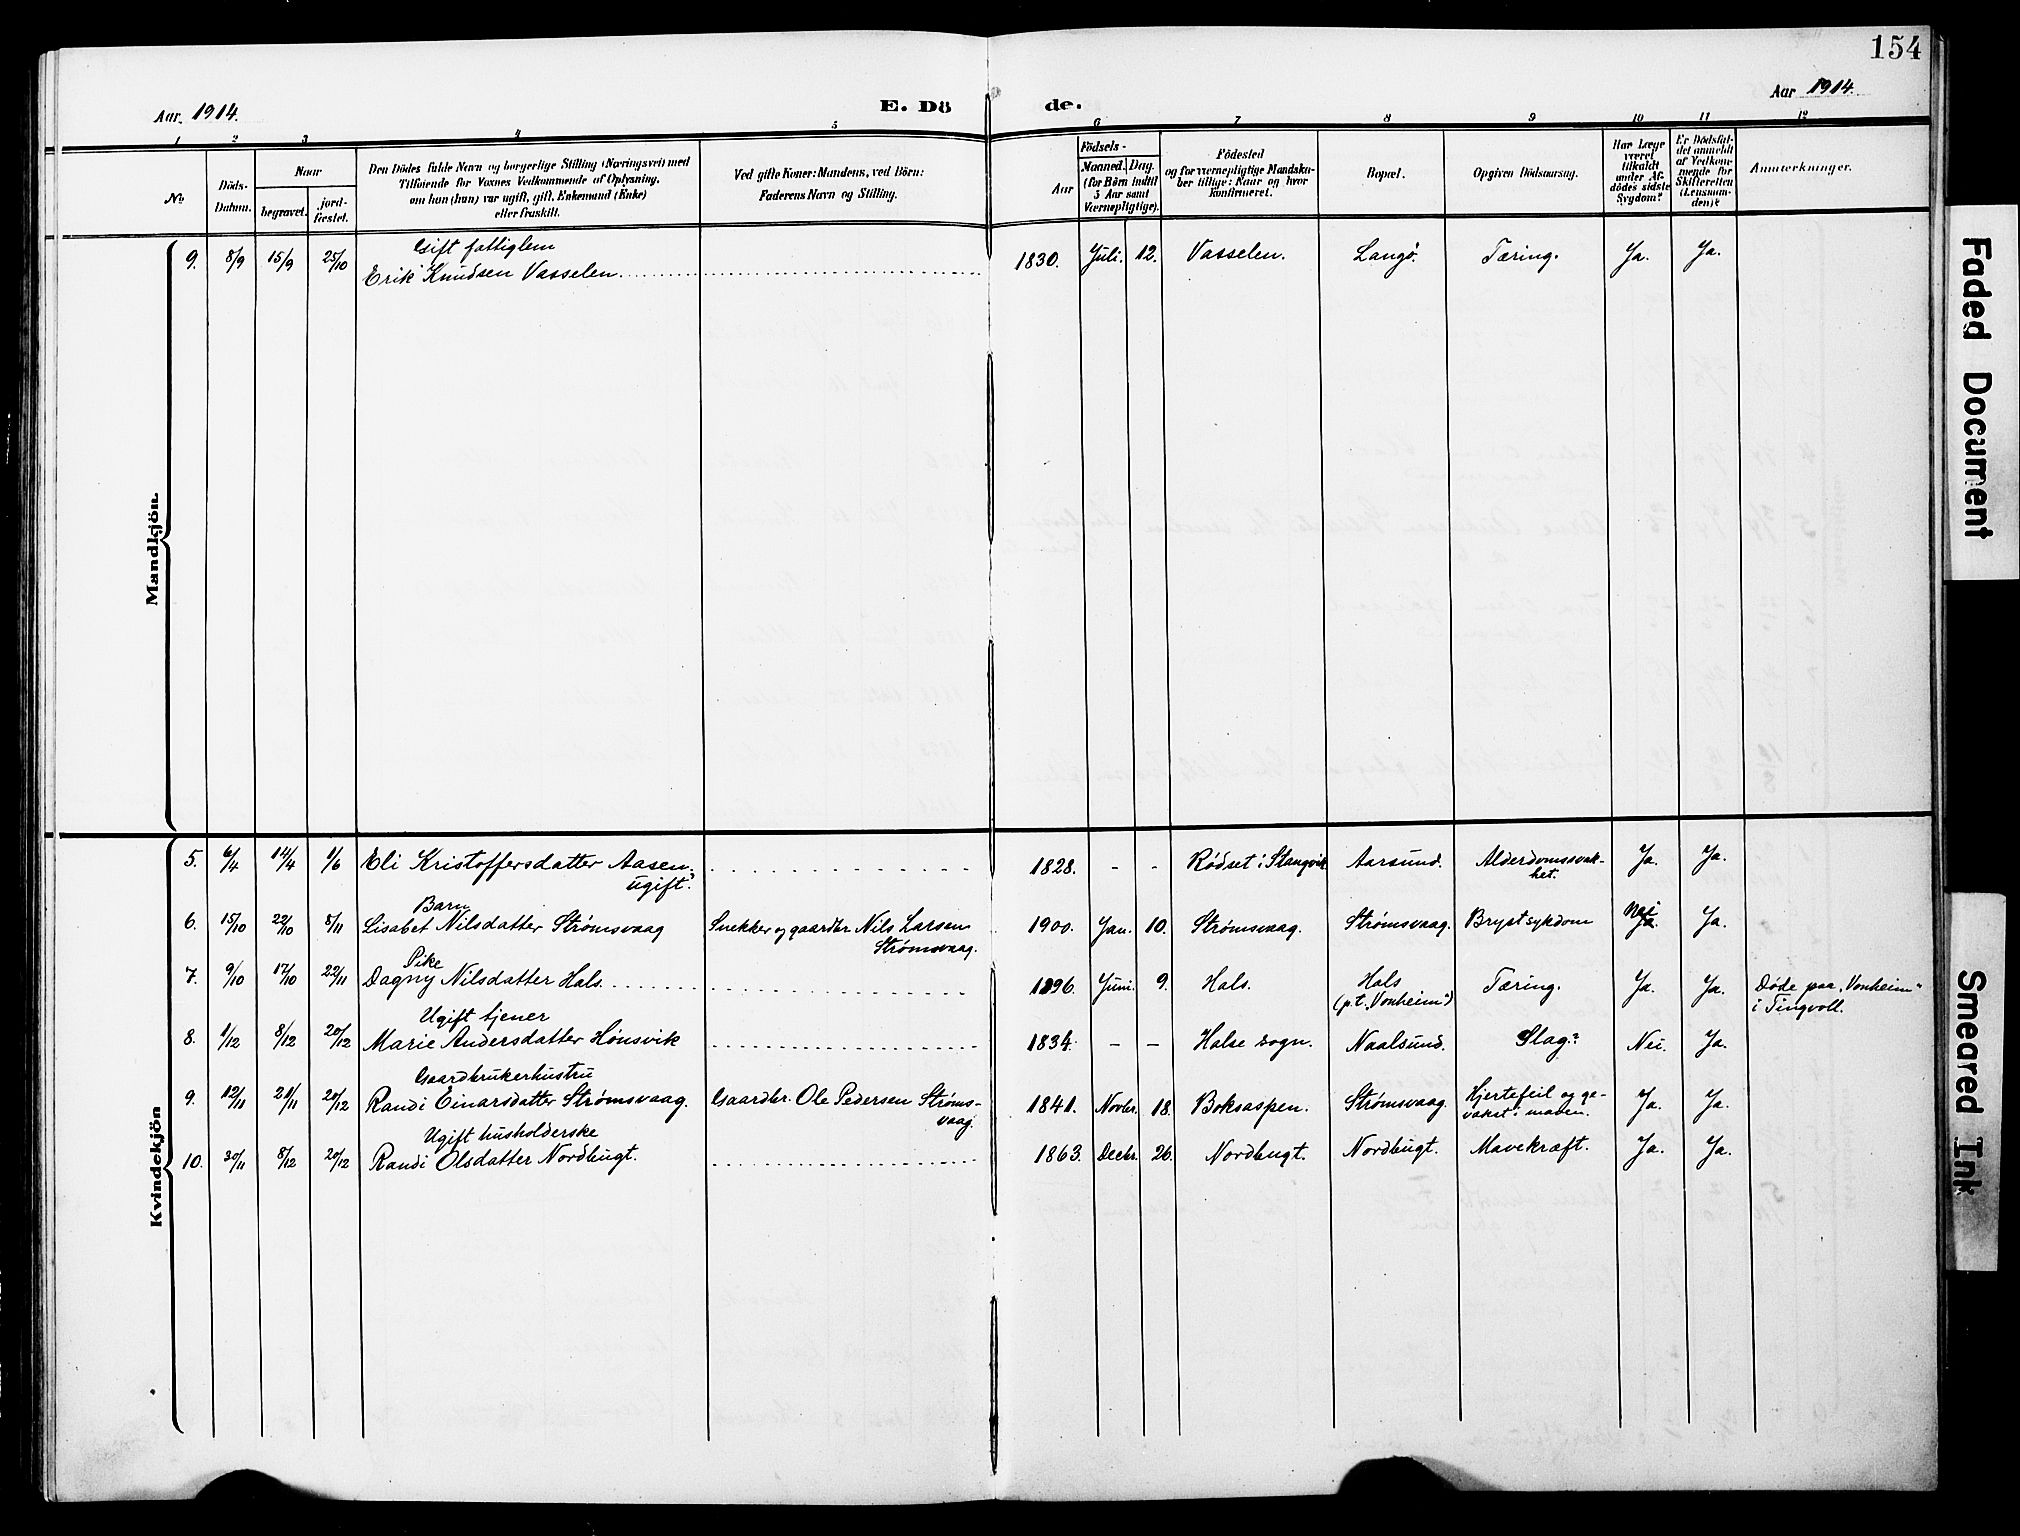 154
Aar 1914.
E. Dö de.
Aar 1914.
1 2 3 4 5 6 7 8 9 10 11 12
No
Döds-Datum.
Naar
begravet.
jord-fæstet.
Den Dödes fulde Navn og borgerlige Stilling (Næringsvei) med
Tilföiende for Voxnes Vedkommende af Oplysning,
om han (hun) var ugift, gift, Enkemand (Enke)
eller fraskilt.
Ved gifte Koner: Mandens, ved Börn:
Faderens Navn og Stilling.
Födsels-
Aar
Maaned. Dag.
(for Börn indtil
5 Aar samt
Værnepligtige).
Födested
og for værnepligtige Mandska-
ber tillige: Naar og hvor
konfirmeret.
Bopæl.
Opgiven Dödsaarsag.
Har Læge
været
tilkaldt
under Af-
dödes sidste
Sygdom?
Er Dödsfal-
det anmeldt
af Vedkom-
mende for
Skifteretten
(Lensman-
den)?
Anmerkninger.
Mandkjön.
Gift fattiglem
9. 8/9 15/9 25/10 Erik Knudsen Vasselen. 1830. Juli. 12. Vasselen. Langø. Tæring. Ja. Ja.
Kvindekjön
5. 6/4 14/4 1/6 Eli Kristoffersdatter Aasen, 1828. - - Rødset i Stangvik Aarsund. Alderdomssvak- Ja. Ja.
ugift. het.
Barn Nei
6. 15/10 22/10 8/11 Lisabet Nilsdatter Strømsvaag Snekker og gaardbr. Nils Larsen 1900. Jan. 10. Strømsvaag. Strømsvaag. Brystsykdom Ja. Ja.
Strømsvaag.
Pike
7. 9/10 17/10 22/11 Dagny Nilsdatter Hals. 1896. Juni. 9. Hals. Hals Tæring. Ja. Ja. Døde paa "Vonheim"
(p.t. "Vonheim") i Tingvoll.
Ugift tjener
8. 1/12 8/12 20/12 Marie Andersdatter Hønsvik 1834. - - Halse sogn. Naalsund. Slag? Nei. Ja.
Gaardbrukerhustru
9. 12/11 21/11 20/12 Randi Einarsdatter Strømsvaag. Gaardbr. Ole Pedersen Strøms- 1841. Novbr. 18. Boksaspen. Strømsvaag. Hjertefeil og ge- Ja. Ja.
vaag. vækst i maven.
Ugift husholderske
10. 30/11 8/12 20/12 Randi Olsdatter Nordbugt. 1863. Decbr. 26. Nordbugt. Nordbugt. Mavekræft. Ja. Ja.
Faded Document
Smeared Ink